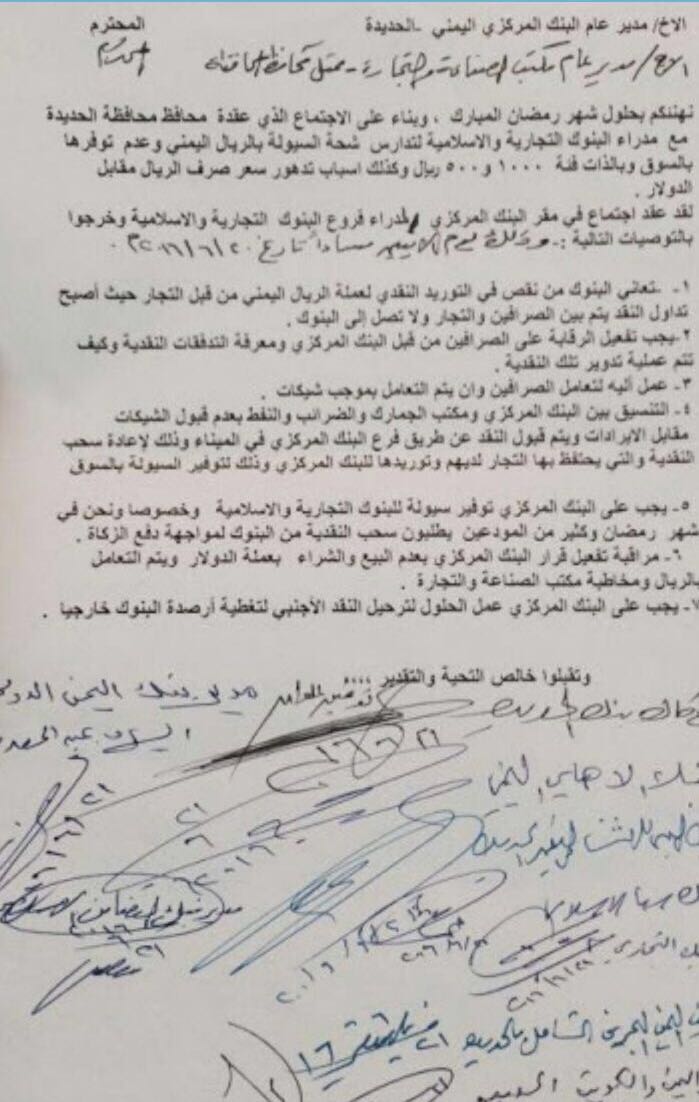 الاخ/ مدير عام البنك المركزي اليمني -الحديدة المحترم
الاخ/ مدير عام مكتب الصناعة والتجارة - ممثل المحافظة المحترم
نهنئكم بحلول شهر رمضان المبارك ، وبناء على الاجتماع الذي عقدة محافظ محافظة الحديدة
مع مدراء البنوك التجارية والاسلامية لتدارس شحة السيولة بالريال اليمني وعدم توفرها
بالسوق وبالذات فئة ١٠٠٠ و ٥٠٠ ريال وكذلك اسباب تدهور سعر صرف الريال مقابل
الدولار .
لقد عقد اجتماع في مقر البنك المركزي لمدراء فروع البنوك التجارية والاسلامية وخرجوا
بالتوصيات التالية :- وذلك يوم الاثنين مساءاً تاريخ ٢٠/٦/٢٠١٦م .
١- -تعاني البنوك من نقص في التوريد النقدي لعملة الريال اليمني من قبل التجار حيث أصبح
تداول النقد يتم بين الصرافين والتجار ولا تصل إلى البنوك .
٢-يجب تفعيل الرقابة على الصرافين من قبل البنك المركزي ومعرفة التدفقات النقدية وكيف
تتم عملية تدوير تلك النقدية .
٣- عمل أليه لتعامل الصرافين وان يتم التعامل بموجب شيكات .
٤- التنسيق بين البنك المركزي ومكتب الجمارك والضرائب والنفط بعدم قبول الشيكات
مقابل الايرادات ويتم قبول النقد عن طريق فرع البنك المركزي في الميناء وذلك لإعادة سحب
النقدية والتي يحتفظ بها التجار لديهم وتوريدها للبنك المركزي وذلك لتوفير السيولة بالسوق
٥- يجب على البنك المركزي توفير سيولة للبنوك التجارية والاسلامية وخصوصا ونحن في
شهر رمضان وكثير من المودعين يطلبون سحب النقدية من البنوك لمواجهة دفع الزكاة .
٦- مراقبة تفعيل قرار البنك المركزي بعدم البيع والشراء بعملة الدولار ويتم التعامل
بالريال ومخاطبة مكتب الصناعة والتجارة .
٧- يجب على البنك المركزي عمل الحلول لترحيل النقد الأجنبي لتغطية أرصدة البنوك خارجيا .
وتقبلوا خالص التحية والتقدير ،،،،
مدير بنك اليمن الدولي
بنك الاهلي اليمني
مدير بنك التضامن
سبأ الاسلامي
التجاري
اليمن البحرين الشامل بالحديدة
اليمن والكويت الحديدة